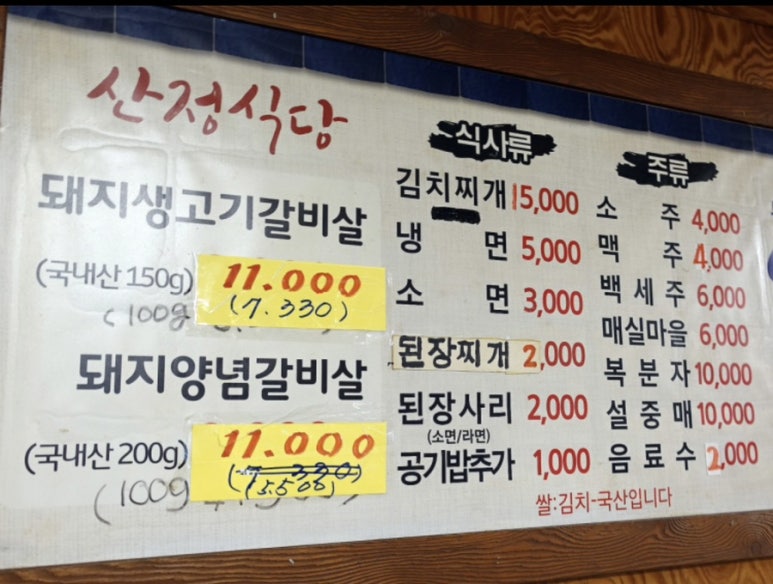 산정식당
돼지생고기갈비살
(국내산 150g) 11.000
(7.330)
(100g
돼지양념갈비살
(국내산 200g) 11.000
(5.500)
(100g
식사류
김치찌개 15,000
냉면 5,000
소면 3,000
된장찌개 2,000
된장사리 2,000
(소면/라면)
공기밥추가 1,000
주류
소주 4,000
맥주 4,000
백세주 6,000
매실마을 6,000
복분자 10,000
설중매 10,000
음료수 2,000
쌀:김치-국산입니다